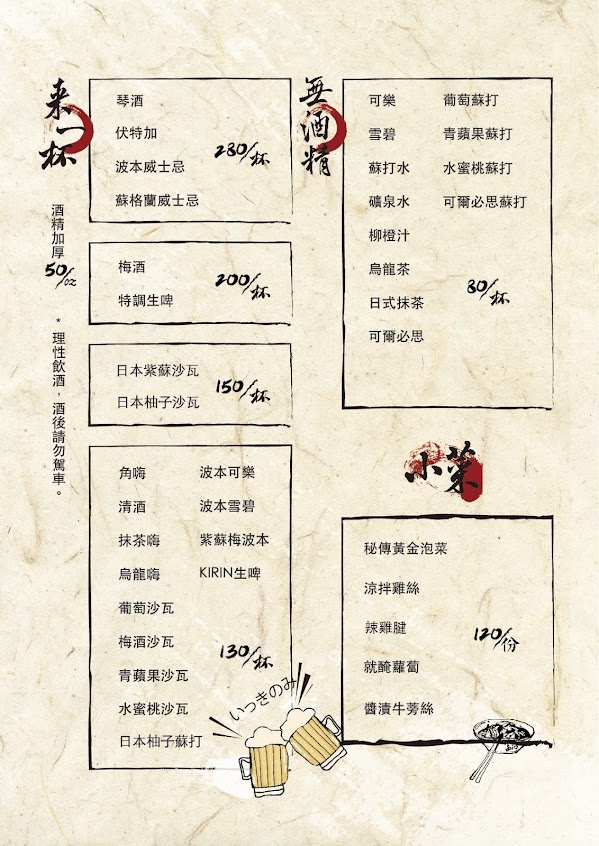 来一杯
酒精加厚
50/oz
*理性飲酒，酒後請勿駕車。
琴酒
伏特加
波本威士忌
蘇格蘭威士忌
280/杯
梅酒
特調生啤
200/杯
日本紫蘇沙瓦
日本柚子沙瓦
150/杯
角嗨
清酒
抹茶嗨
烏龍嗨
葡萄沙瓦
梅酒沙瓦
青蘋果沙瓦
水蜜桃沙瓦
日本柚子蘇打
波本可樂
波本雪碧
紫蘇梅波本
KIRIN生啤
130/杯
いっきのみ
無酒精
可樂
雪碧
蘇打水
礦泉水
柳橙汁
烏龍茶
日式抹茶
可爾必思
葡萄蘇打
青蘋果蘇打
水蜜桃蘇打
可爾必思蘇打
80/杯
小菜
秘傳黃金泡菜
涼拌雞絲
辣雞腱
就醃蘿蔔
醬漬牛蒡絲
120/份